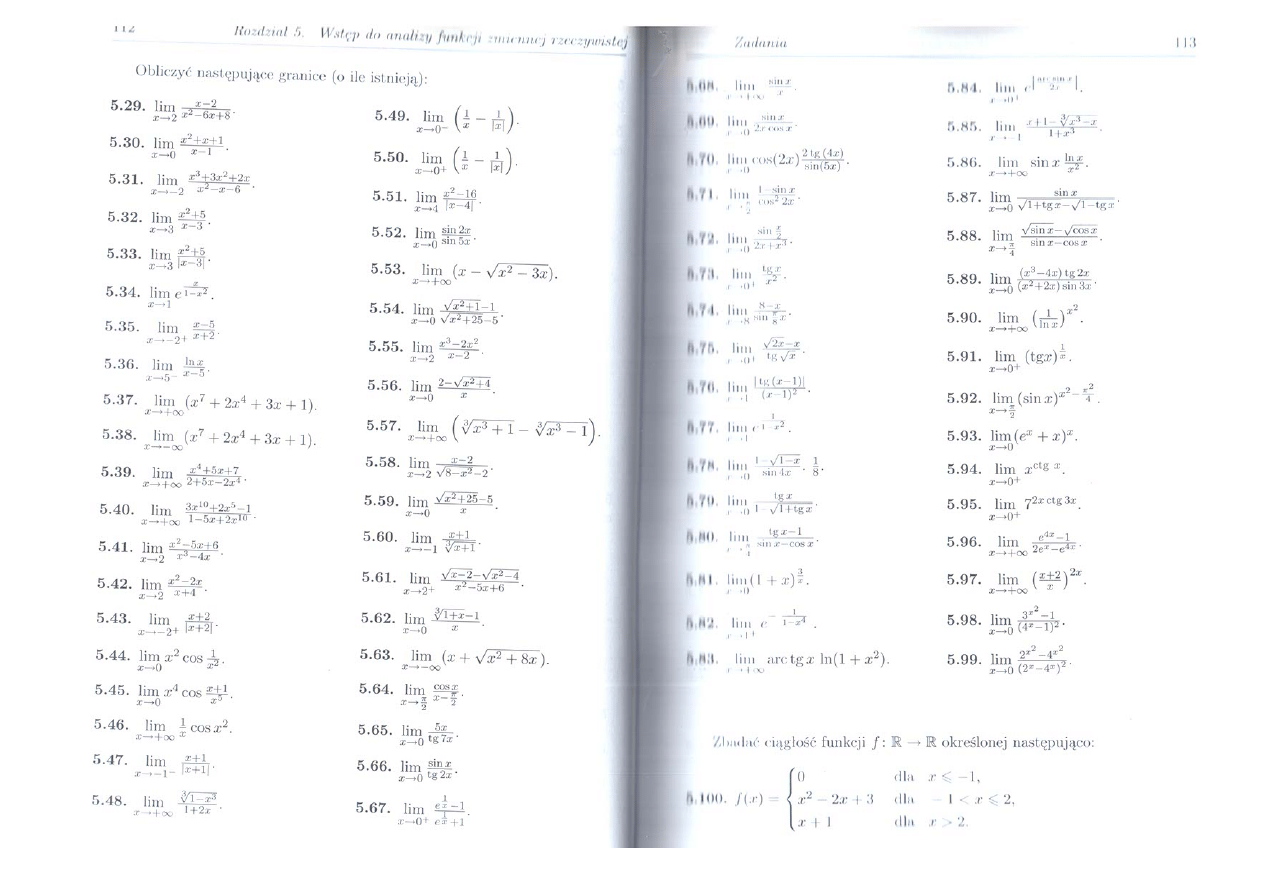 112 Rozdział 5. Wstęp do analizy funkcji zmiennej rzeczywistej
Obliczyć następujące granice (o ile istnieją):
5.29. lim_{x→2} (x−2)/(x²−6x+8).
5.30. lim_{x→0} (x²+x+1)/(x−1).
5.31. lim_{x→−2} (x³+3x²+2x)/(x²−x−6).
5.32. lim_{x→3} (x²+5)/(x−3).
5.33. lim_{x→3} (x²+5)/|x−3|.
5.34. lim_{x→1} e^{x/(1−x²)}.
5.35. lim_{x→−2+} (x−5)/(x+2).
5.36. lim_{x→5−} (ln x)/(x−5).
5.37. lim_{x→+∞} (x⁷ + 2x⁴ + 3x + 1).
5.38. lim_{x→−∞} (x⁷ + 2x⁴ + 3x + 1).
5.39. lim_{x→+∞} (x⁴+5x+7)/(2+5x−2x⁴).
5.40. lim_{x→+∞} (3x¹⁰+2x⁵−1)/(1−5x+2x¹⁰).
5.41. lim_{x→2} (x²−5x+6)/(x³−4x).
5.42. lim_{x→2} (x²−2x)/(x+4).
5.43. lim_{x→−2+} (x+2)/|x+2|.
5.44. lim_{x→0} x² cos 1/x².
5.45. lim_{x→0} x⁴ cos (x+1)/x⁵.
5.46. lim_{x→+∞} 1/x cos x².
5.47. lim_{x→−1−} (x+1)/|x+1|.
5.48. lim_{x→+∞} ∛(1−x³)/(1+2x).
5.49. lim_{x→0−} (1/x − 1/|x|).
5.50. lim_{x→0+} (1/x − 1/|x|).
5.51. lim_{x→4} (x²−16)/|x−4|.
5.52. lim_{x→0} (sin 2x)/(sin 5x).
5.53. lim_{x→+∞} (x − √(x² − 3x)).
5.54. lim_{x→0} (√(x²+1)−1)/(√(x²+25)−5).
5.55. lim_{x→2} (x³−2x²)/(x−2).
5.56. lim_{x→0} (2−√(x²+4))/x.
5.57. lim_{x→+∞} (∛(x³ + 1) − ∛(x³ − 1)).
5.58. lim_{x→2} (x−2)/(√(8−x²)−2).
5.59. lim_{x→0} (√(x²+25)−5)/x.
5.60. lim_{x→−1} (x+1)/∛(x+1).
5.61. lim_{x→2+} (√(x−2)−√(x²−4))/(x²−5x+6).
5.62. lim_{x→0} (∛(1+x)−1)/x.
5.63. lim_{x→−∞} (x + √(x² + 8x)).
5.64. lim_{x→π/2} (cos x)/(x−π/2).
5.65. lim_{x→0} 5x/(tg 7x).
5.66. lim_{x→0} (sin x)/(tg 2x).
5.67. lim_{x→0+} (e^{1/x}−1)/(e^{1/x}+1).
Zadania 113
5.68. lim_{x→+∞} (sin x)/x.
5.69. lim_{x→0} (sin x)/(2x cos x).
5.70. lim_{x→0} cos(2x) (2 tg (4x))/(sin(5x)).
5.71. lim_{x→π/2} (1−sin x)/(cos² 2x).
5.72. lim_{x→0} (sin x/2)/(2x+x⁴).
5.73. lim_{x→0+} (tg x)/x².
5.74. lim_{x→8} (8−x)/(sin π/8 x).
5.75. lim_{x→0+} (√(2x)−x)/(tg √x).
5.76. lim_{x→1} |tg (x−1)|/(x−1)².
5.77. lim_{x→1} e^{1/(1−x²)}.
5.78. lim_{x→0} (1−√(1−x))/(sin 4x) · 1/8.
5.79. lim_{x→0} (tg x)/(1−√(1+tg x)).
5.80. lim_{x→π/4} (tg x−1)/(sin x−cos x).
5.81. lim_{x→0} (1 + x)^{3/x}.
5.82. lim_{x→1+} e^{−1/(1−x⁴)}.
5.83. lim_{x→+∞} arc tg x ln(1 + x²).
5.84. lim_{x→0+} e^{|(arc sin x)/2x|}.
5.85. lim_{x→−1} (x+1−∛(x³−x))/(1+x³).
5.86. lim_{x→+∞} sin x (ln x)/x².
5.87. lim_{x→0} (sin x)/(√(1+tg x)−√(1−tg x)).
5.88. lim_{x→π/4} (√(sin x)−√(cos x))/(sin x−cos x).
5.89. lim_{x→0} ((x³−4x) tg 2x)/((x²+2x) sin 3x).
5.90. lim_{x→+∞} (1/(ln x))^{x²}.
5.91. lim_{x→0+} (tgx)^{1/x}.
5.92. lim_{x→π/2} (sin x)^{x²−π²/4}.
5.93. lim_{x→0} (eˣ + x)ˣ.
5.94. lim_{x→0+} x^{ctg x}.
5.95. lim_{x→0+} 7^{2x ctg 3x}.
5.96. lim_{x→+∞} (e^{4x}−1)/(2eˣ−e^{4x}).
5.97. lim_{x→+∞} ((x+2)/x)^{2x}.
5.98. lim_{x→0} (3^{x²}−1)/(4ˣ−1)².
5.99. lim_{x→0} (2^{x²}−4^{x²})/(2ˣ−4ˣ)².
Zbadać ciągłość funkcji f: ℝ → ℝ określonej następująco:
5.100. f(x) = {
0 dla x ⩽ −1,
x² − 2x + 3 dla − 1 < x ⩽ 2,
x + 1 dla x > 2.